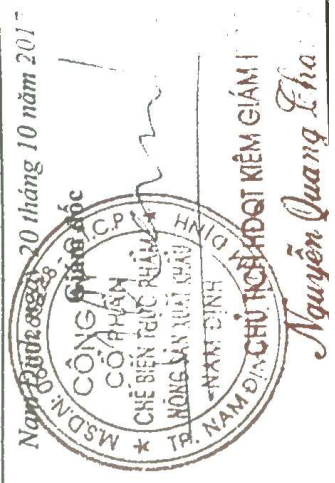 Nam Định, ngày 20 tháng 10 năm 201
Giám đốc
M.S.D.N: 0
C.P
CÔNG TY
CỔ PHẦN
CHẾ BIẾN THỰC PHẨM
NÔNG SẢN XUẤT KHẨU
NAM ĐỊNH
TP. NAM ĐỊNH
CHỦ TỊCH HĐQT KIÊM GIÁM
Nguyễn Quang